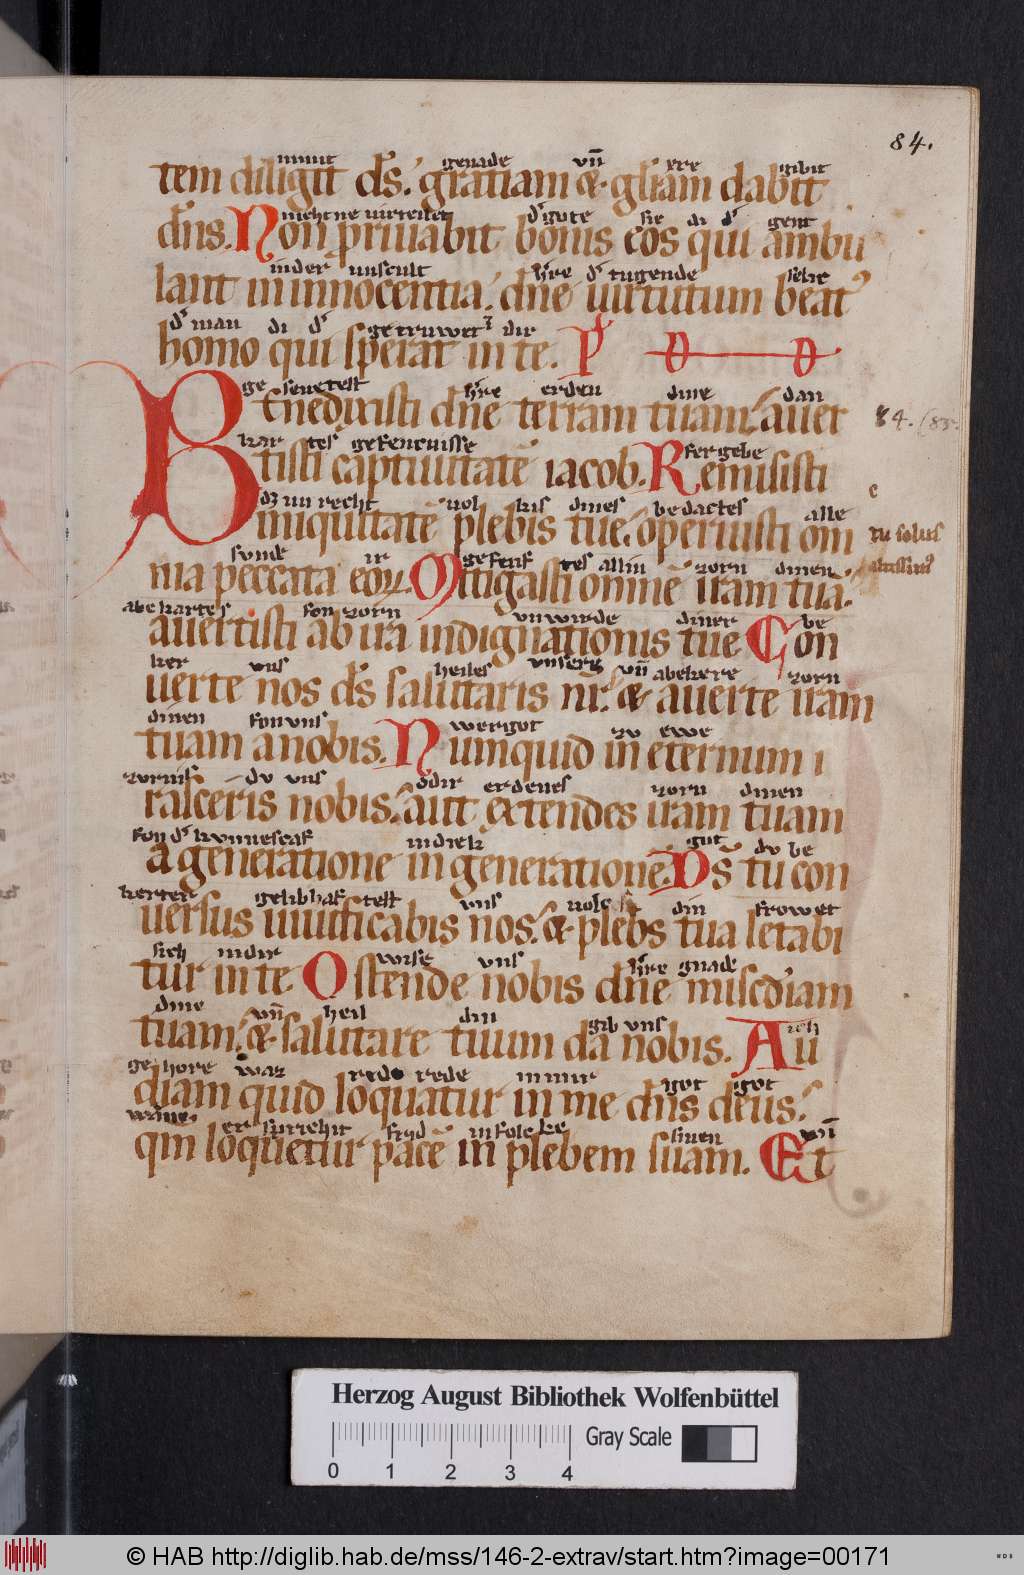 84.
minnt genade vn̄ ere gibit
tem diligit ds̄. gratiam & gl̄iam dabit
nieht ne uirteilet d' gote sie di d' gent
dn̄s. Non priuabit bonis eos qui ambu
inder unscult h're d' tugende selic
lant in innocentia. dn̄e uirtutum beat'
d' man di d' getruwet dir
homo qui sperat in te. P's D D
ge senetest h're erden dine dan
Benedixisti dn̄e terram tuam. auer
kar tes gefencnisse fergebe
tisti captiuitatē iacob. Remisisti
84. (85.
dz unrecht uol kis dines bedactes alle
iniquitatē plebis tue. operuisti om
tu solus
altissim'
sunde ir gesenf tes allin zorn dinen
nia peccata eoꝝ. Mitigasti omnē iram tuā.
abe kartes fon zorn unwirde diner be
auertisti ab ira indignationis tue Con
ker vns heiles vnserꝫ vn̄ abekere zorn
uerte nos ds̄ salutaris nr̄. & auerte iram
dinen fon vns wer got zu ewe
tuam a nobis. Numquid in eternum i
zornis du vns odir erdenes zorn dinen
rasceris nobis. aut extendes iram tuam
fon d' kunnescaf in dieh got du be
a generatione in generationē. Ds̄ tu con
kerter gelibhaf test vns uolc din frowet
uersus uiuificabis nos. & plebs tua letabi
sich in dir wise vns h're gnade
tur in te Ostende nobis dn̄e misc̄diam
dine vn̄ heil din gib vns ich
tuam. & salutare tuum da nobis. Au
gehore waz rede in mir got got
diam quid loquatur in me dn̄s deus.
er spricht frid in folc sinen vn̄
qm̄ loquetur pacē in plebem suam. Et
Herzog August Bibliothek Wolfenbüttel
Gray Scale
0 1 2 3 4
© HAB http://diglib.hab.de/mss/146-2-extrav/start.htm?image=00171